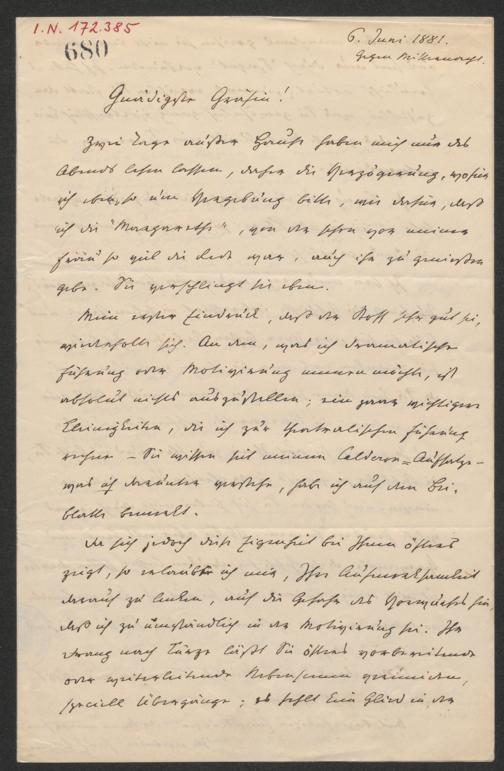 I.N. 172.385
680
6. Juni 1881.
Gegen Mitternacht.
Gnädigste Gräfin!
Zwei Tage außer Hause haben mich nur des
Abends lesen lassen, daher die Verzögerung, wofür
ich ebenso um Vergebung bitte, wie dafür, daß
ich die "Margarethe", von der schon vor meiner
Frau so viel die Rede war, auch ihr zu genießen
gebe. Sie verschlingt sie eben.
Mein erster Eindruck, daß der Stoff sehr gut sei,
wiederholte sich. An dem, was ich dramatische
Führung oder Motivierung nennen möchte, ist
absolut nichts auszustellen; ein paar wichtigere
Kleinigkeiten, die ich zur theatralischen Führung
rechne – Sie wissen seit meinem Calderon-Aufsatze –
was ich darunter verstehe, hab ich auf dem Bei-
blatte bemerkt.
Da sich jedoch diese Eigenheit bei Ihnen öfters
zeigt, so erlaube ich mir, Ihre Aufmerksamkeit
darauf zu lenken, auf die Gefahr des Vorwurfs hin,
daß ich zu umständlich in der Motivierung sei. Ihr
Drang nach Kürze läßt Sie öfters vorbereitende
oder weiterleitende Nebenscenen vermeiden,
speciell Übergänge; es fehlt Ein Glied in der